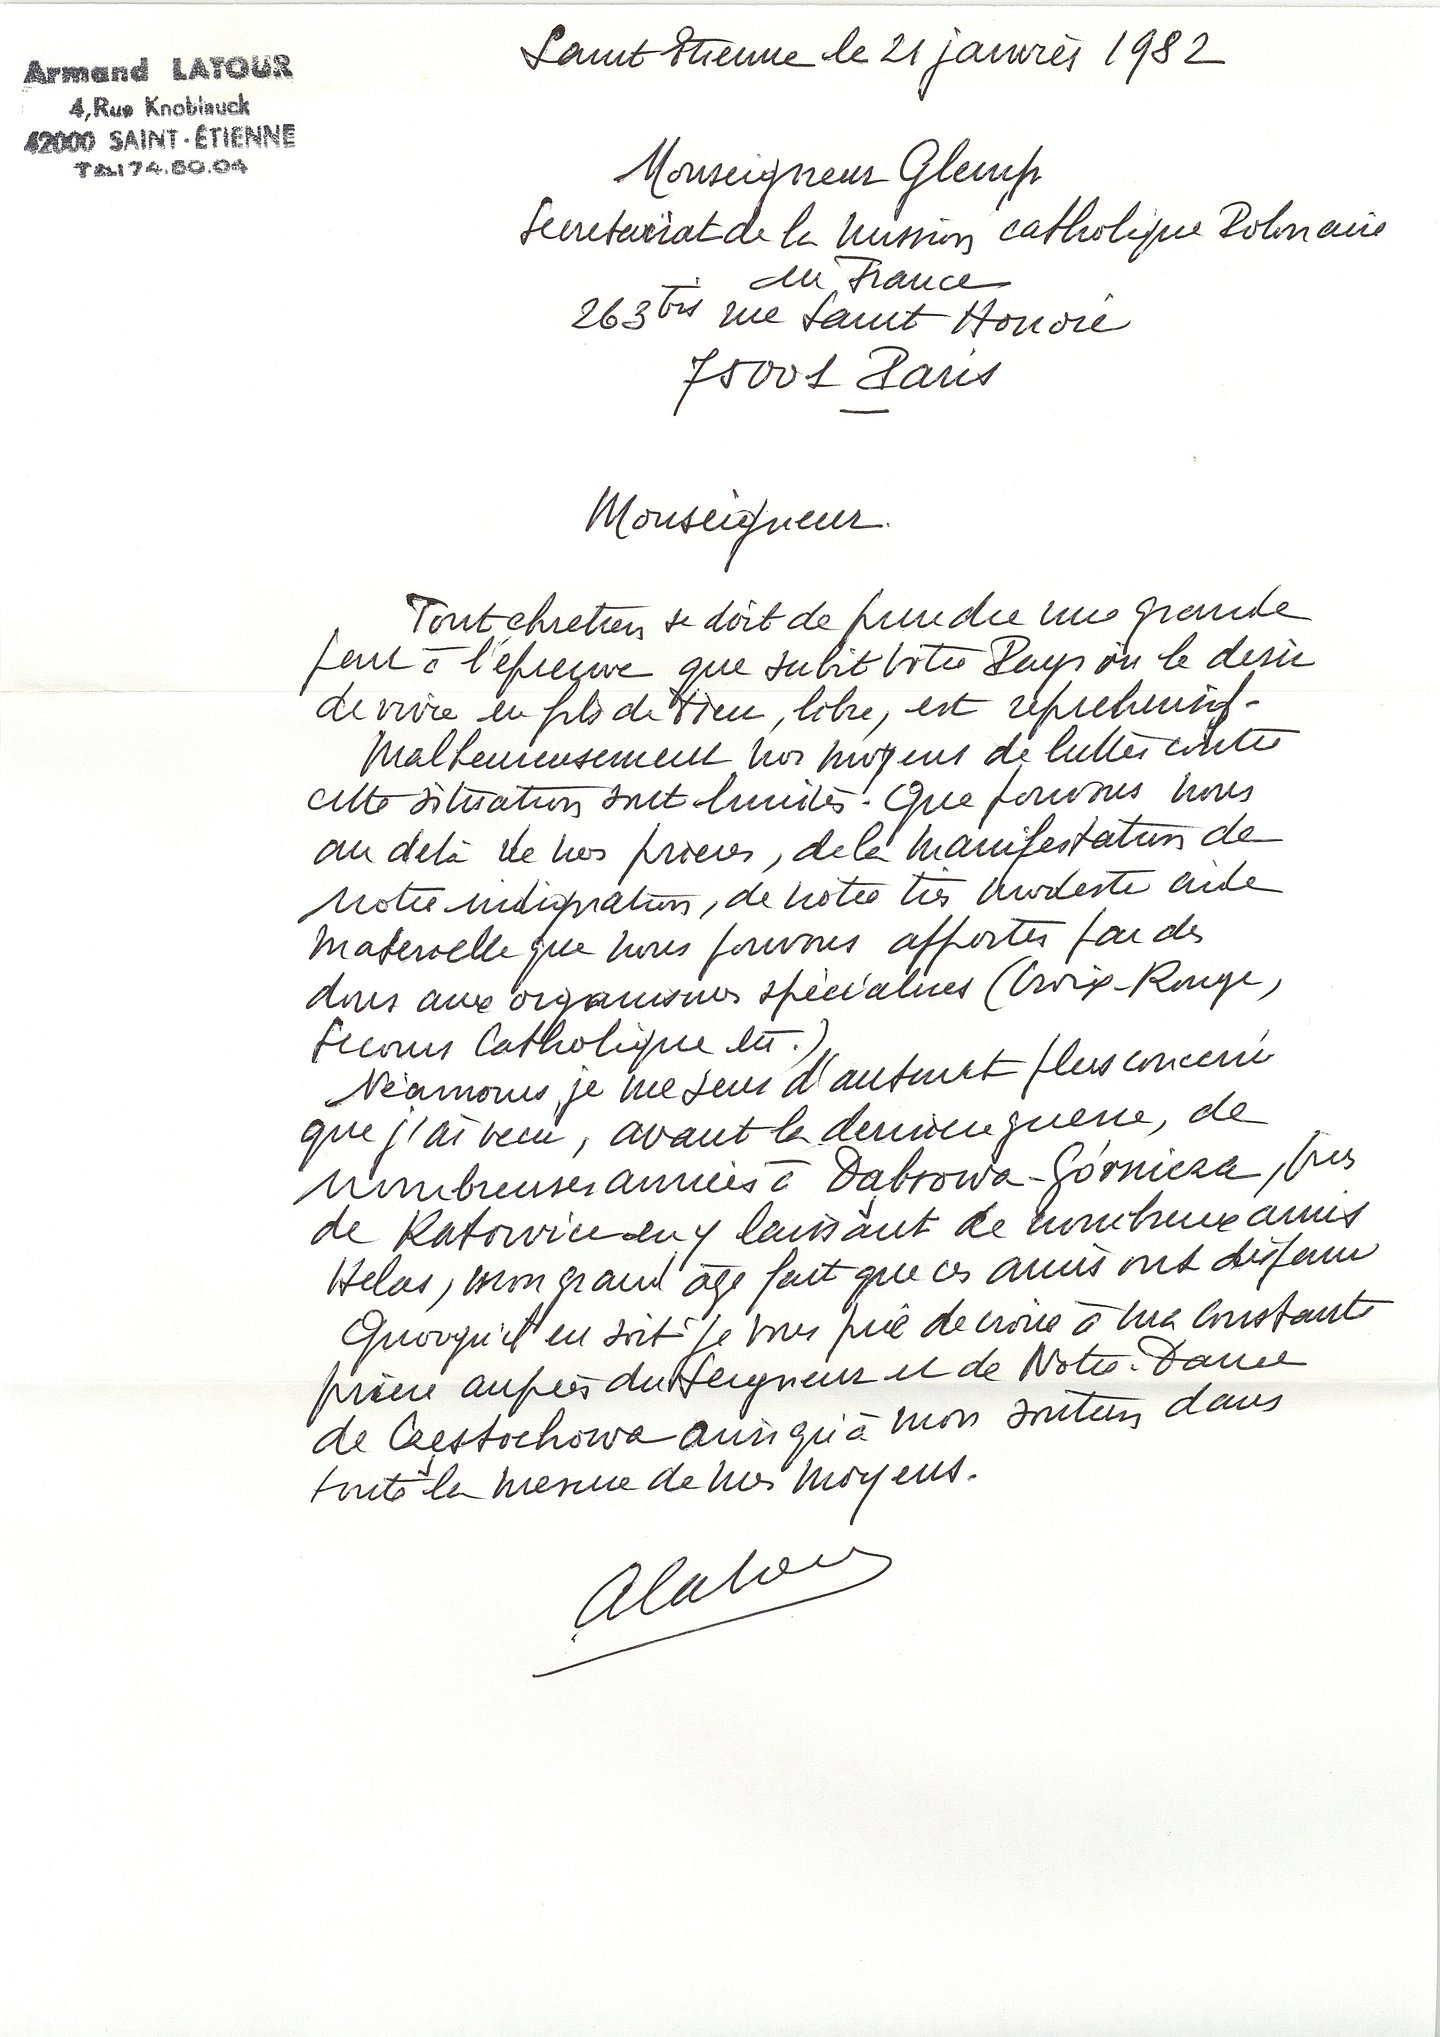 Armand LATOUR
4, Rue Knoblauck
42000 SAINT-ÉTIENNE
Tél: 74.80.04
Saint Etienne le 21 janvier 1982
Monseigneur Glemp
Secretariat de la Mission catholique Polonaise
en France
263 bis rue Saint Honoré
75001 Paris
Monseigneur.
Tout chretien se doit de prendre une grande
part à l'épreuve que subit votre Pays où le desir
de vivre en fils de Dieu, libre, est reprehensif-
Malheureusement nos moyens de lutter contre
cette situation sont limités. Que pouvons nous
au delà de nos prieres, de la manifestation de
notre indignation, de notre très modeste aide
materielle que nous pouvons apporter par des
dons aux organismes spécialisés (Croix-Rouge,
Secours Catholique etc.)
Néamoins, je me sens d'autant plus concerné
que j'ai vecu, avant la derniere guerre, de
nombreuses années à Dąbrowa-Górnicza, près
de Katowice en y laissant de nombreux amis
Helas, mon grand âge fait que ces amis ont disparu
Quoiqu'il en soit je vous prie de croire à ma constante
prière auprès du Seigneur et de Notre-Dame
de Częstochowa ainsi qu'à mon soutien dans
toute la mesure de mes moyens.
ALatour